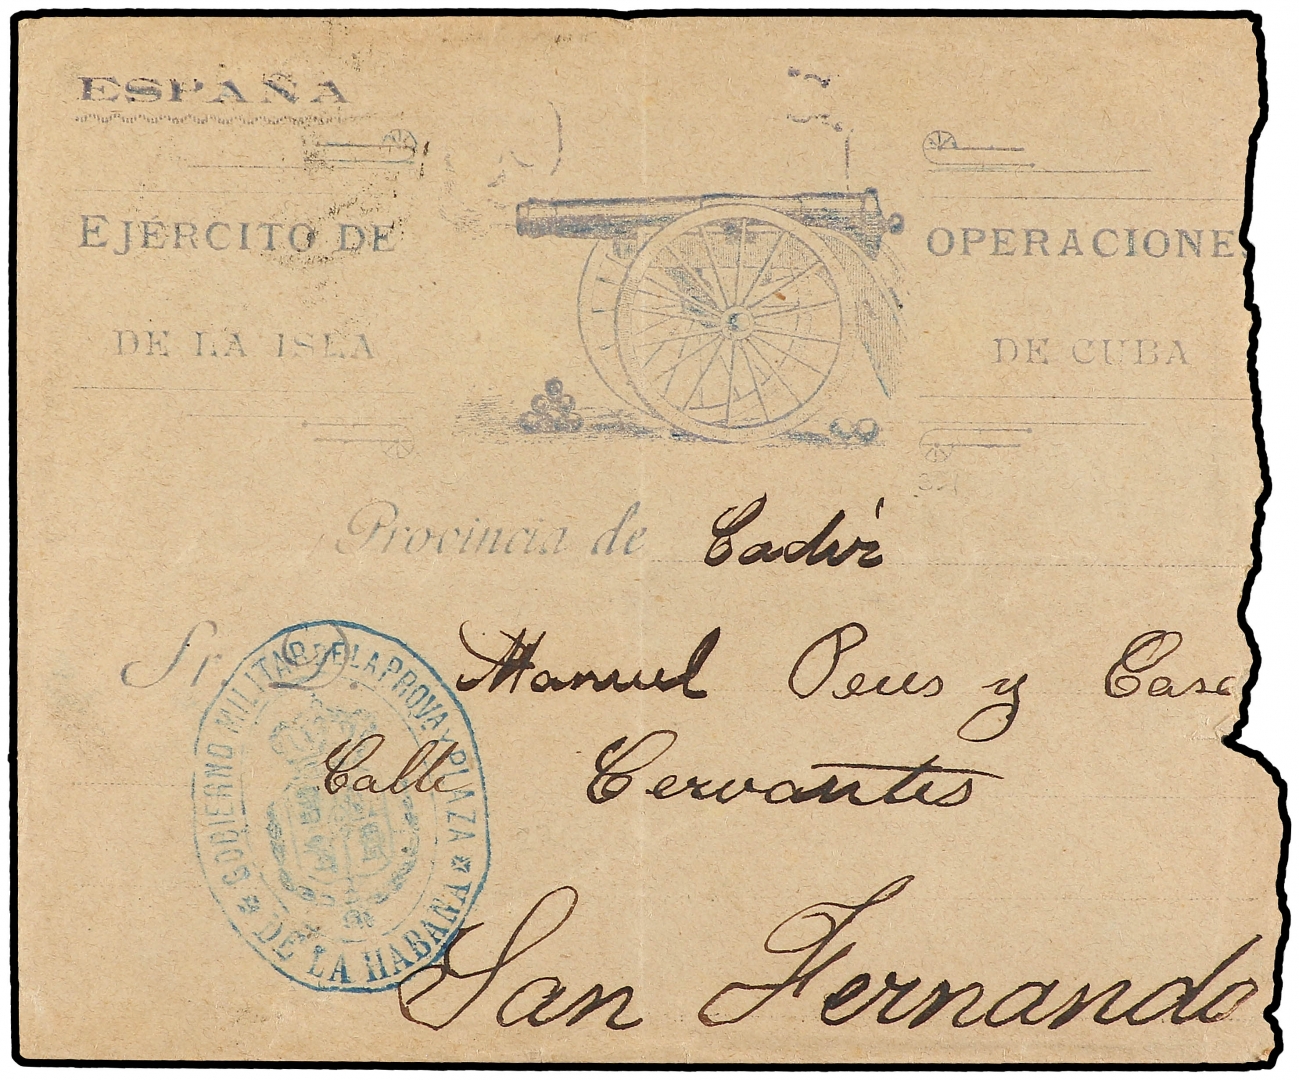 ESPAÑA
EJÉRCITO DE OPERACIONE
DE LA ISLA DE CUBA
Provincia de Cadiz
Sr. D. Manuel Peus y Casa
Calle Cervantes
San Fernando
GOBIERNO MILITAR DE LA PROVA. Y PLAZA
DE LA HABANA